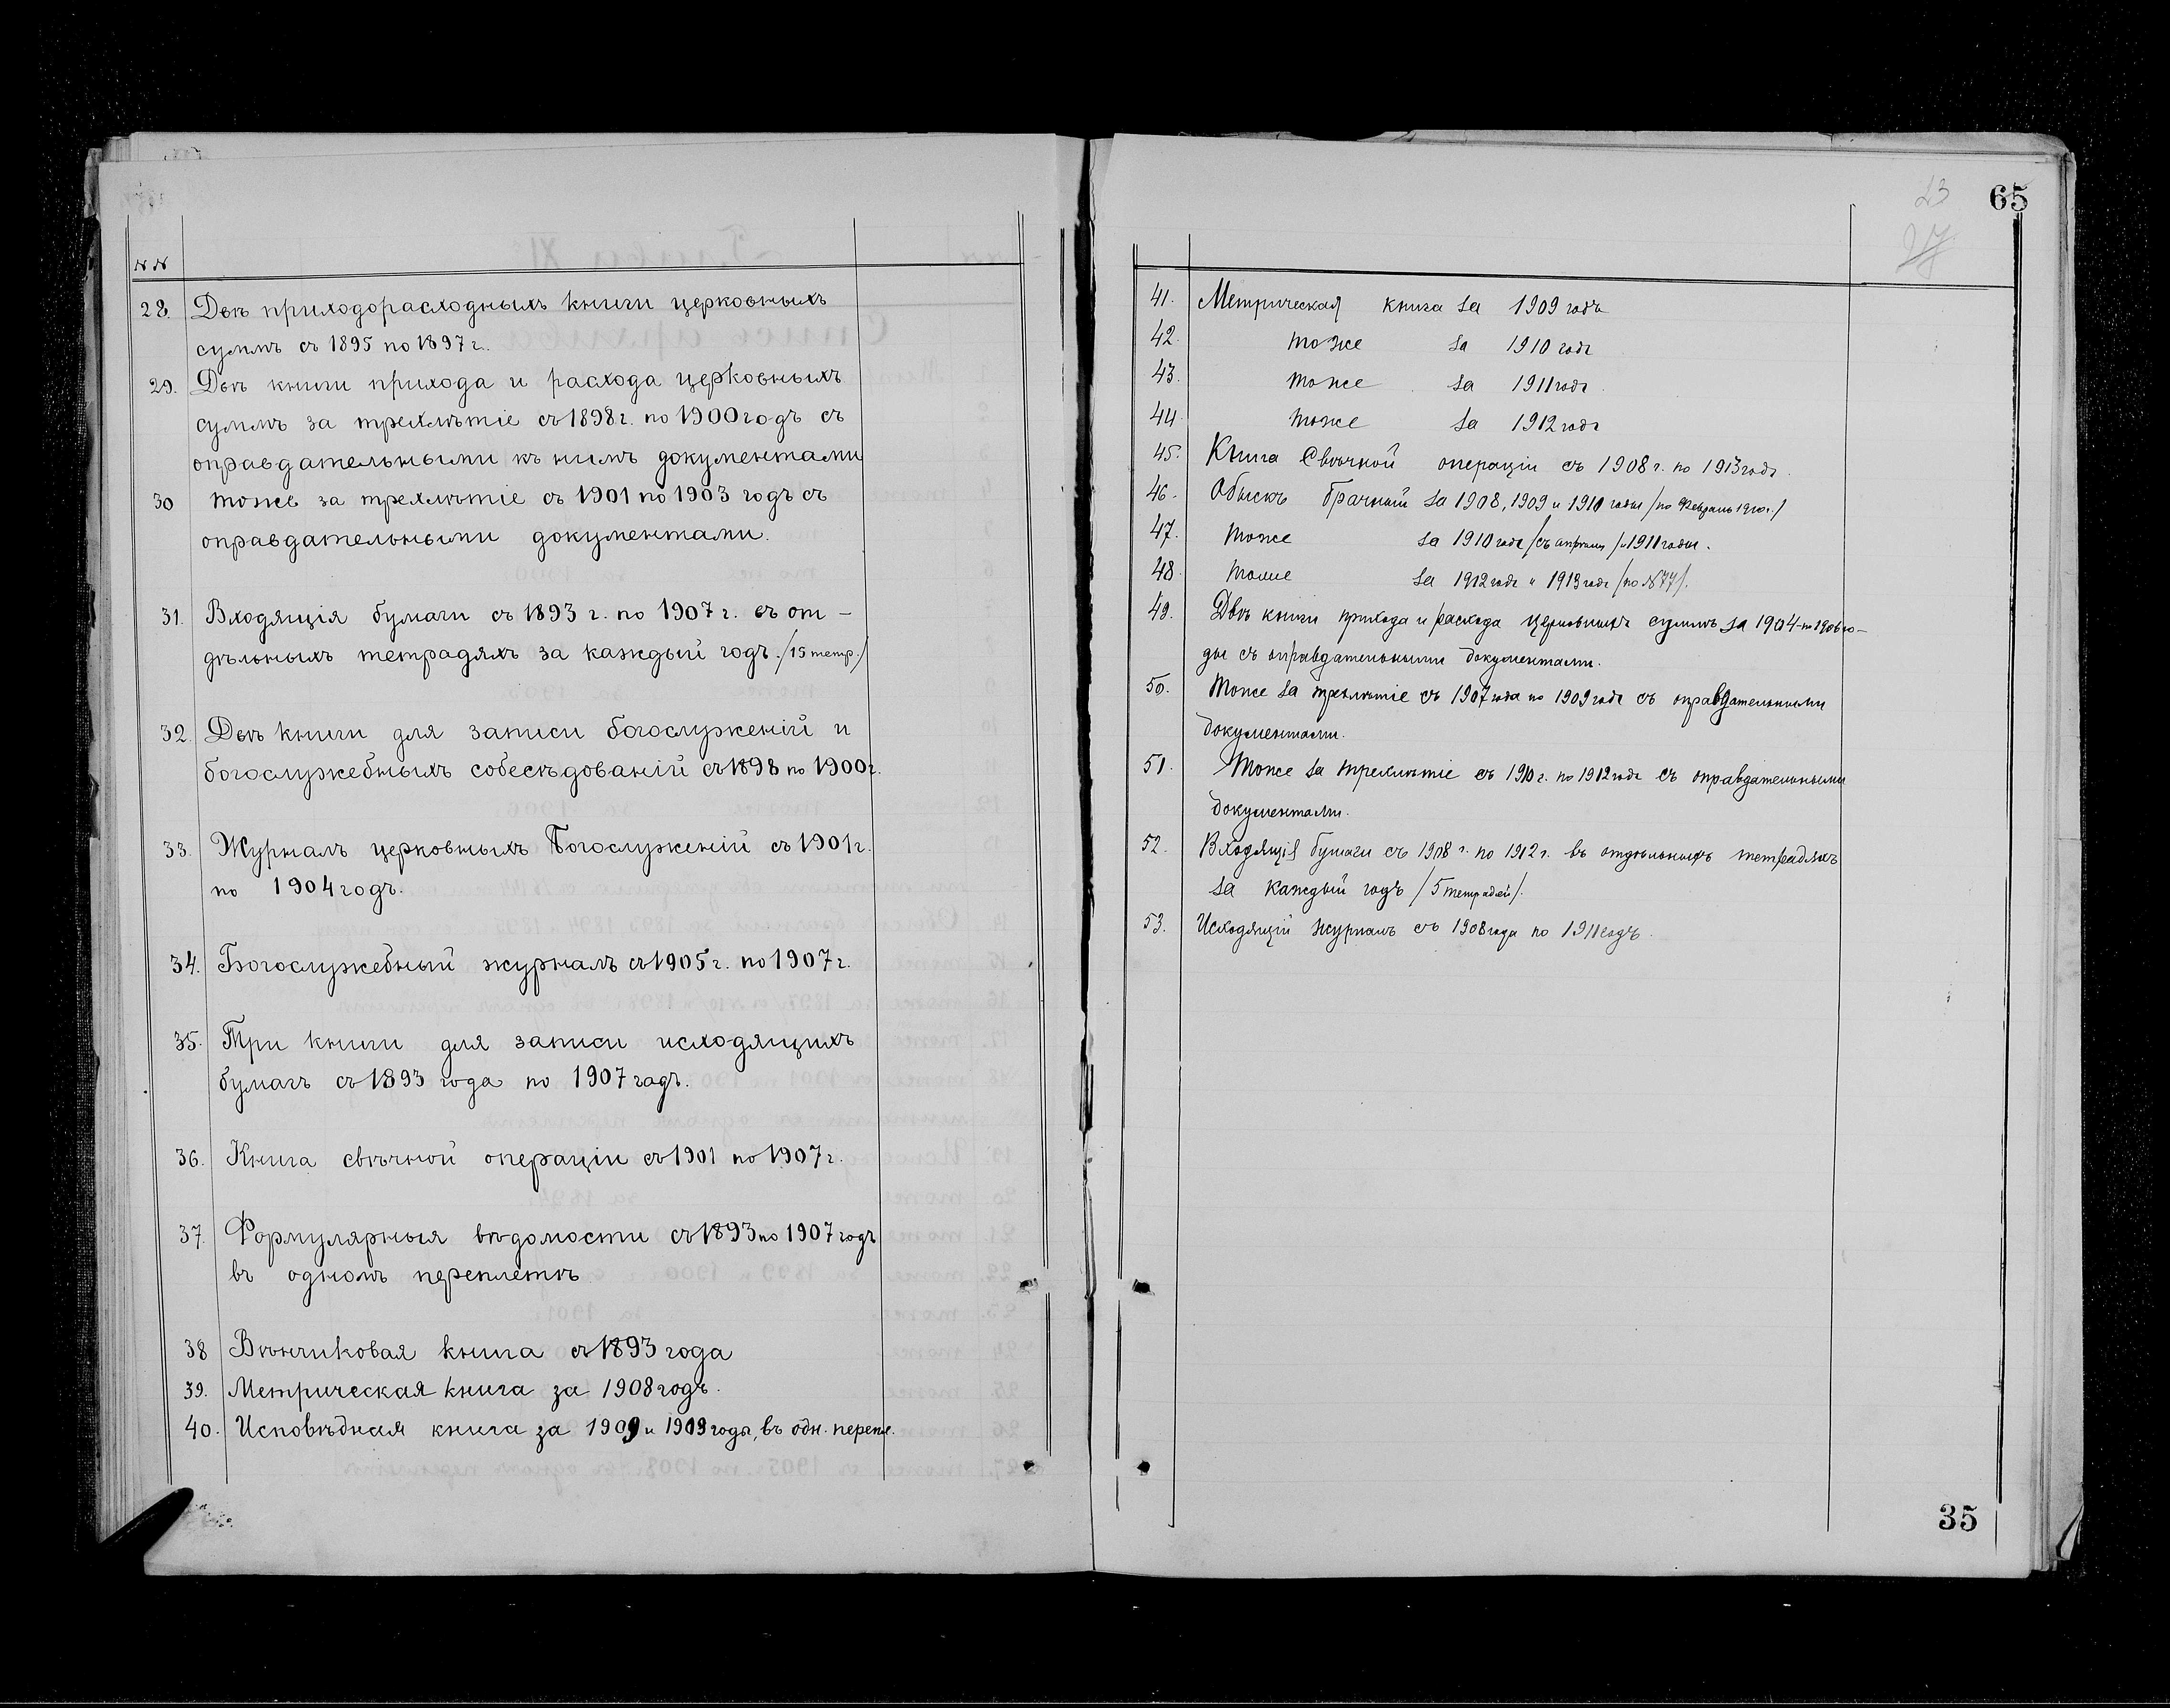 №№
28. Двѣ приходорасходныхъ книги церковныхъ
суммъ съ 1895 по 1897 г.
29. Двѣ книги прихода и расхода церковныхъ
суммъ за трехлѣтіе съ 1898 г. по 1900 годъ съ
оправдательными къ нимъ документами
30 тоже за трехлѣтіе съ 1901 по 1903 годъ съ
оправдательными документами.
31. Входящія бумаги съ 1893 г. по 1907 г. въ от-
дѣльныхъ тетрадяхъ за каждый годъ. /15 тетр./
32. Двѣ книги для записи богослуженій и
богослужебныхъ собесѣдованій съ 1898 по 1900 г.
33. Журналъ церковныхъ Богослуженій съ 1901 г.
по 1904 годъ.
34. Богослужебный журналъ съ 1905 г. по 1907 г.
35. Три книги для записи исходящихъ
бумагъ съ 1893 года по 1907 годъ.
36. Книга свѣчной операціи съ 1901 по 1907 г.
37. Формулярныя вѣдомости съ 1893 по 1907 годъ
въ одномъ переплетѣ
38 Вѣнчиковая книга съ 1893 года
39. Метрическая книга за 1908 годъ.
40. Исповѣдная книга за 1909 и годы, въ одн. перепл.
65
23
27
41. Метрическая книга за 1909 годъ
42. тоже за 1910 годъ
43. тоже за 1911 годъ.
44. тоже за 1912 годъ
45. Книга Свѣчной операціи съ 1908 г. по 1913 годъ.
46. Обыскъ брачный за 1908, 1909 и 1910 годы /по Февраль 1910 г./
47. Тоже за 1910 годъ /съ апрѣля/ и 1911 годы.
48. Тоже за 1912 годъ и 1913 годъ /по №77/.
49. Двѣ книги прихода и расхода церковныхъ суммъ за 1904-по 1906 го-
ды съ оправдательными документами.
50. Тоже за трехлѣтіе съ 1907 года по 1909 годъ съ оправдательными
документами.
51. Тоже за трехлѣтіе съ 1910 г. по 1912 годъ съ оправдательными
документами.
52. Входящія бумаги съ 1908 г. по 1912 г. въ отдѣльныхъ тетрадяхъ
за каждый годъ /5 тетрадей/.
53. Исходящій журналъ съ 1908 года по 1911 годъ.
35